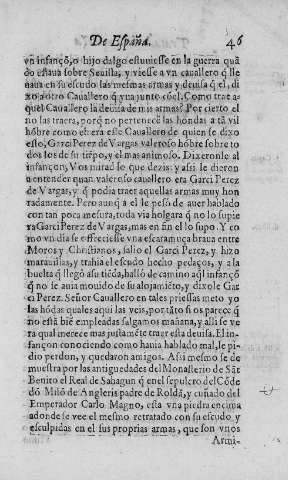 De España. 46
vn infançõ, o hijo dalgo estuuiesse en la guerra quã
do estaua sobre Seuilla, y viesse a vn cauallero q̃ lle
uaua en su escudo las mesmas armas y deuisa q̃ el, di
xo a otro Cauallero q̃ yua junto cõel. Como trae a-
quel Cauallero la deuisa de mis armas? Por cierto el
no las traera, porq̃ no pertenecẽ las hondas a tã vil
hõbre como este: era este Cauallero de quien se dixo
esto, Garci Perez de Vargas valeroso hõbre sobre to
dos los de su tiẽpo, y el mas animoso. Dixeronle al
infançon, Vos mirad lo que dezis: y assi le dieron
a entender quan valeroso cauallero era Garci Perez
de Vargas, y q̃ podia traer aquellas armas muy hon
radamente. Pero aunq̃ a el le pesó de auer hablado
con tan poca mesura, toda via holgara q̃ no lo supie
ra Garci Perez de Vargas, mas en fin el lo supo. Y co
mo vn dia se offreciesse vna escaramuça braua entre
Moros y Christianos, salio el Garci Perez, y hizo
marauillas, y trahia el escudo hecho pedaços, y a la
buelta q̃ llegó a su tiẽda, halló de camino aq̃l infançõ
q̃ no se auia mouido de su alojamiẽto, y dixole Gar
ci Perez. Señor Cauallero en tales priessas meto yo
las hõdas quales aqui las veis, por tãto si os parece q̃
no está biẽ empleadas salgamos mañana, y alli se ve
ra qual merece mas justamẽte traer esta deuisa. El in-
fançon conociendo como hauia hablado mal, le pi-
dio perdon, y quedaron amigos. Assi mesmo se de
muestra por las antiguedades del Monasterio de Sãt
Benito el Real de Sahagun q̃ enel sepulcro del Cõde
dõ Milõ de Angleris padre de Roldã, y cuñado del
Emperador Carlo Magno, esta vna piedra encima
adonde se vee el mesmo retratado con su escudo, y
esculpidas en el sus proprias armas, que son vnos
Armi-